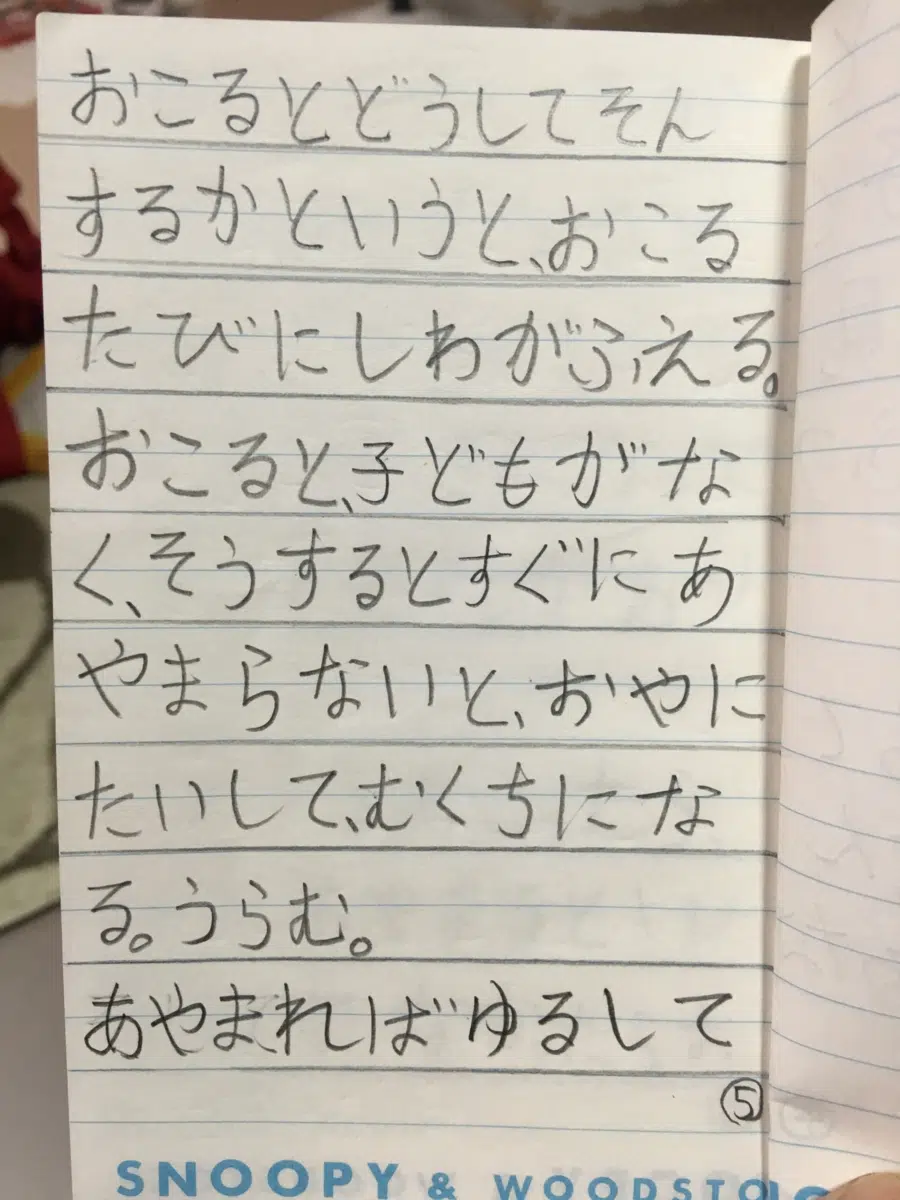 おこるとどうしてそん
するかというと、おこる
たびにしわがふえる。
おこると、子どもがな
く、そうするとすぐにあ
やまらないと、おやに
たいして、むくちにな
る。うらむ。
あやまればゆるして
⑤
SNOOPY & WOODSTOC